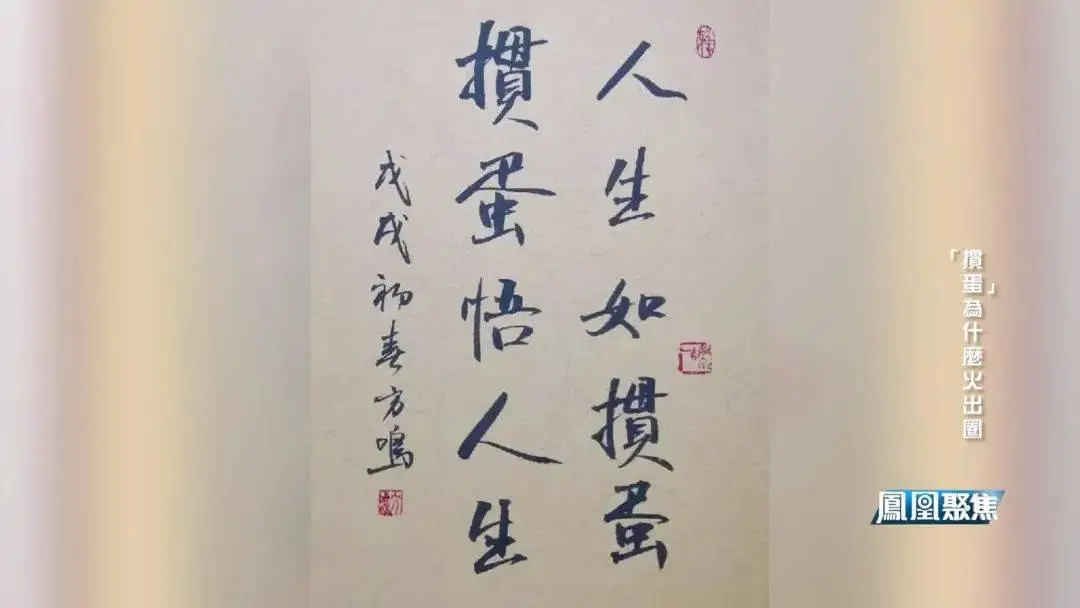 人生如掼蛋
掼蛋悟人生
戊戌初春方鳴
「摜蛋」為什麼火出圈
鳳凰聚焦